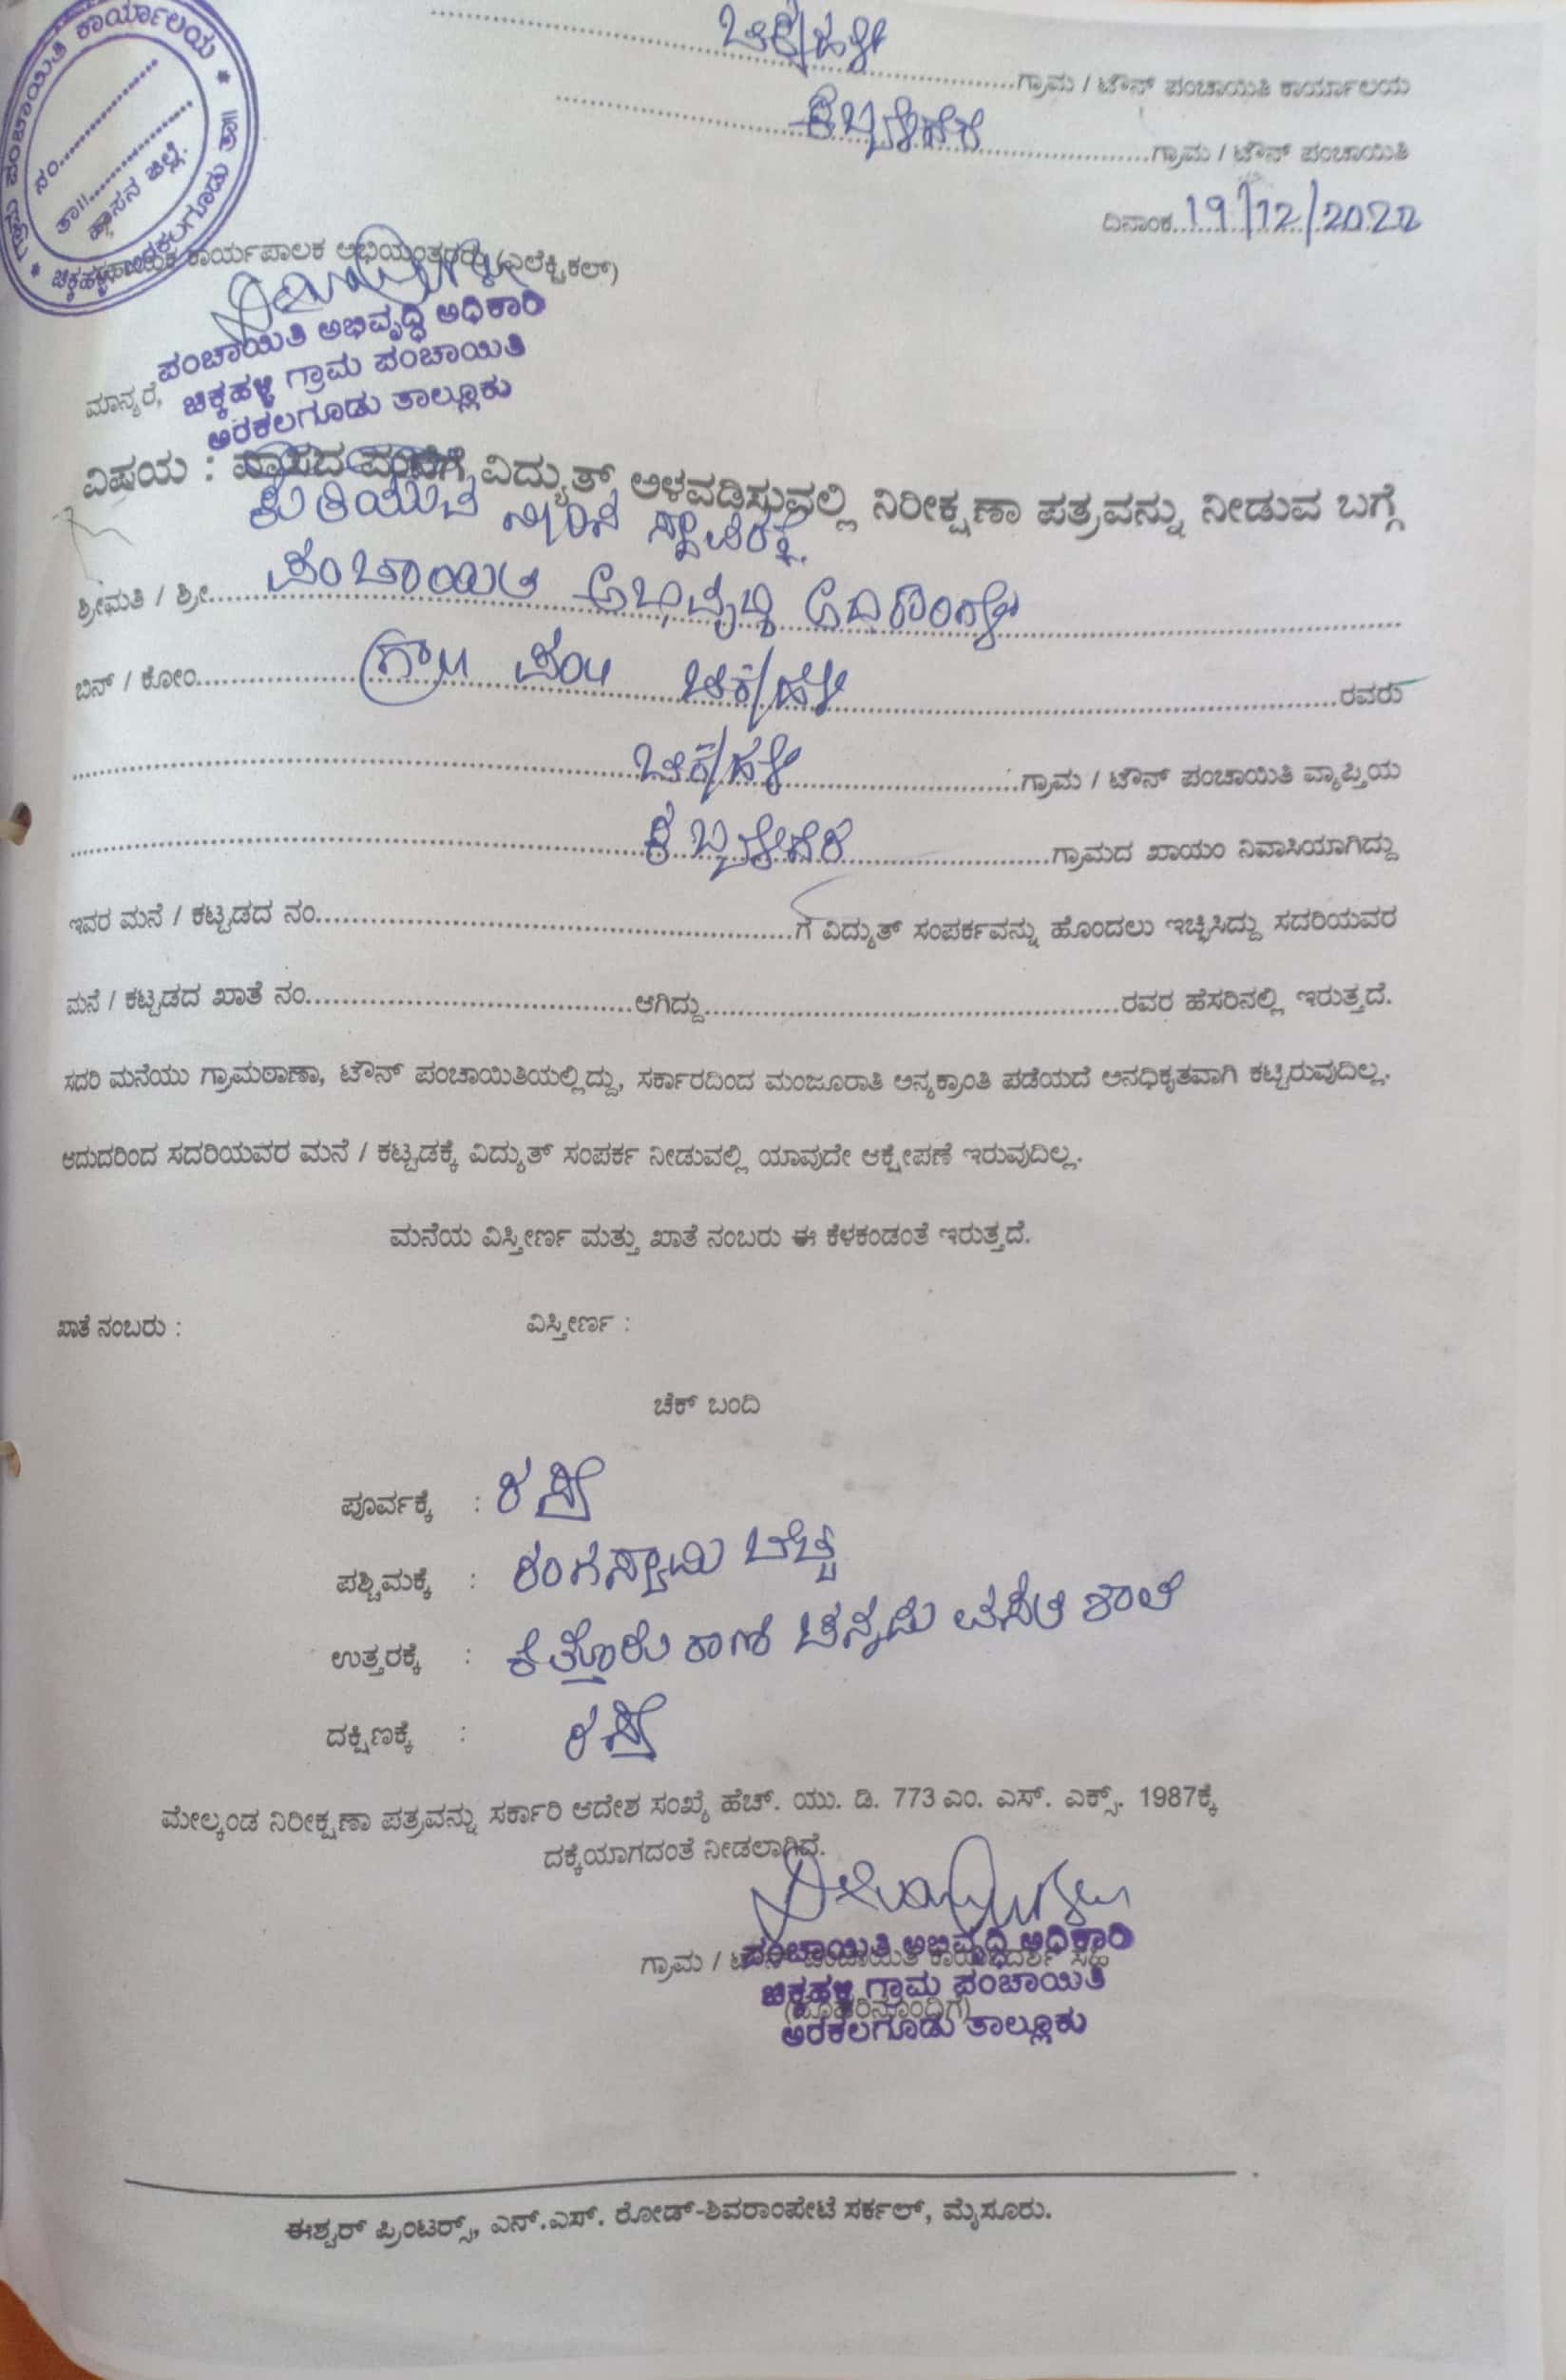 ಚಿಕ್ಕಹಳ್ಳಿ ಗ್ರಾಮ / ಟೌನ್ ಪಂಚಾಯಿತಿ ಕಾರ್ಯಾಲಯ
ಗ್ರಾಮ / ಟೌನ್ ಪಂಚಾಯಿತಿ
ದಿನಾಂಕ 19/12/2022
ಪಂಚಾಯಿತಿ ಕಾರ್ಯಾಲಯ * ಚಿಕ್ಕಹಳ್ಳಿ ಅರಕಲಗೂಡು ತಾ॥
ನಂ
ತಾ॥
ಹಾಸನ ಜಿಲ್ಲೆ.
ಕಾರ್ಯಪಾಲಕ ಅಭಿಯಂತರರು (ಎಲೆಕ್ಟ್ರಿಕಲ್)
ಪಂಚಾಯಿತಿ ಅಭಿವೃದ್ಧಿ ಅಧಿಕಾರಿ
ಚಿಕ್ಕಹಳ್ಳಿ ಗ್ರಾಮ ಪಂಚಾಯಿತಿ
ಅರಕಲಗೂಡು ತಾಲ್ಲೂಕು
ಮಾನ್ಯರೆ,
ವಿಷಯ : ವಾಸದ ಮನೆಗೆ ವಿದ್ಯುತ್ ಅಳವಡಿಸುವಲ್ಲಿ ನಿರೀಕ್ಷಣಾ ಪತ್ರವನ್ನು ನೀಡುವ ಬಗ್ಗೆ
ಕುಡಿಯುವ ನೀರಿನ ಸ್ಥಾವರಕ್ಕೆ
ಶ್ರೀಮತಿ / ಶ್ರೀ ಪಂಚಾಯಿತಿ ಅಭಿವೃದ್ಧಿ ಅಧಿಕಾರಿಗಳು
ಬಿನ್ / ಕೋಂ ಗ್ರಾಮ ಪಂಚಾ ಚಿಕ್ಕಹಳ್ಳಿ ರವರು
ಚಿಕ್ಕಹಳ್ಳಿ ಗ್ರಾಮ / ಟೌನ್ ಪಂಚಾಯಿತಿ ವ್ಯಾಪ್ತಿಯ
ಗ್ರಾಮದ ಖಾಯಂ ನಿವಾಸಿಯಾಗಿದ್ದು
ಇವರ ಮನೆ / ಕಟ್ಟಡದ ನಂ. ಗೆ ವಿದ್ಯುತ್ ಸಂಪರ್ಕವನ್ನು ಹೊಂದಲು ಇಚ್ಛಿಸಿದ್ದು ಸದರಿಯವರ
ಮನೆ / ಕಟ್ಟಡದ ಖಾತೆ ನಂ. ಆಗಿದ್ದು ರವರ ಹೆಸರಿನಲ್ಲಿ ಇರುತ್ತದೆ.
ಸದರಿ ಮನೆಯು ಗ್ರಾಮಠಾಣಾ, ಟೌನ್ ಪಂಚಾಯಿತಿಯಲ್ಲಿದ್ದು, ಸರ್ಕಾರದಿಂದ ಮಂಜೂರಾತಿ ಅನ್ಯಕ್ರಾಂತಿ ಪಡೆಯದೆ ಅನಧಿಕೃತವಾಗಿ ಕಟ್ಟಿರುವುದಿಲ್ಲ.
ಆದುದರಿಂದ ಸದರಿಯವರ ಮನೆ / ಕಟ್ಟಡಕ್ಕೆ ವಿದ್ಯುತ್ ಸಂಪರ್ಕ ನೀಡುವಲ್ಲಿ ಯಾವುದೇ ಆಕ್ಷೇಪಣೆ ಇರುವುದಿಲ್ಲ.
ಮನೆಯ ವಿಸ್ತೀರ್ಣ ಮತ್ತು ಖಾತೆ ನಂಬರು ಈ ಕೆಳಕಂಡಂತೆ ಇರುತ್ತದೆ.
ಖಾತೆ ನಂಬರು : ವಿಸ್ತೀರ್ಣ :
ಚೆಕ್ ಬಂದಿ
ಪೂರ್ವಕ್ಕೆ : ರಸ್ತೆ
ಪಶ್ಚಿಮಕ್ಕೆ : ರಂಗಸ್ವಾಮಿ ಬೆಟ್ಟ
ಉತ್ತರಕ್ಕೆ : ಕಿತ್ತೂರು ರಾಣಿ ಚೆನ್ನಮ್ಮ ವಸತಿ ಶಾಲೆ
ದಕ್ಷಿಣಕ್ಕೆ : ರಸ್ತೆ
ಮೇಲ್ಕಂಡ ನಿರೀಕ್ಷಣಾ ಪತ್ರವನ್ನು ಸರ್ಕಾರಿ ಆದೇಶ ಸಂಖ್ಯೆ ಹೆಚ್. ಯು. ಡಿ. 773 ಎಂ. ಎಸ್. ಎಕ್ಸ್. 1987ಕ್ಕೆ
ದಕ್ಕೆಯಾಗದಂತೆ ನೀಡಲಾಗಿದೆ.
ಗ್ರಾಮ / ಟೌನ್ ಪಂಚಾಯಿತಿ ಕಾರ್ಯದರ್ಶಿ ಸಹಿ
(ಮೊಹರಿನೊಂದಿಗೆ)
ಪಂಚಾಯಿತಿ ಅಭಿವೃದ್ಧಿ ಅಧಿಕಾರಿ
ಚಿಕ್ಕಹಳ್ಳಿ ಗ್ರಾಮ ಪಂಚಾಯಿತಿ
ಅರಕಲಗೂಡು ತಾಲ್ಲೂಕು
ಈಶ್ವರ್ ಪ್ರಿಂಟರ್ಸ್, ಎನ್.ಎಸ್. ರೋಡ್-ಶಿವರಾಂಪೇಟೆ ಸರ್ಕಲ್, ಮೈಸೂರು.